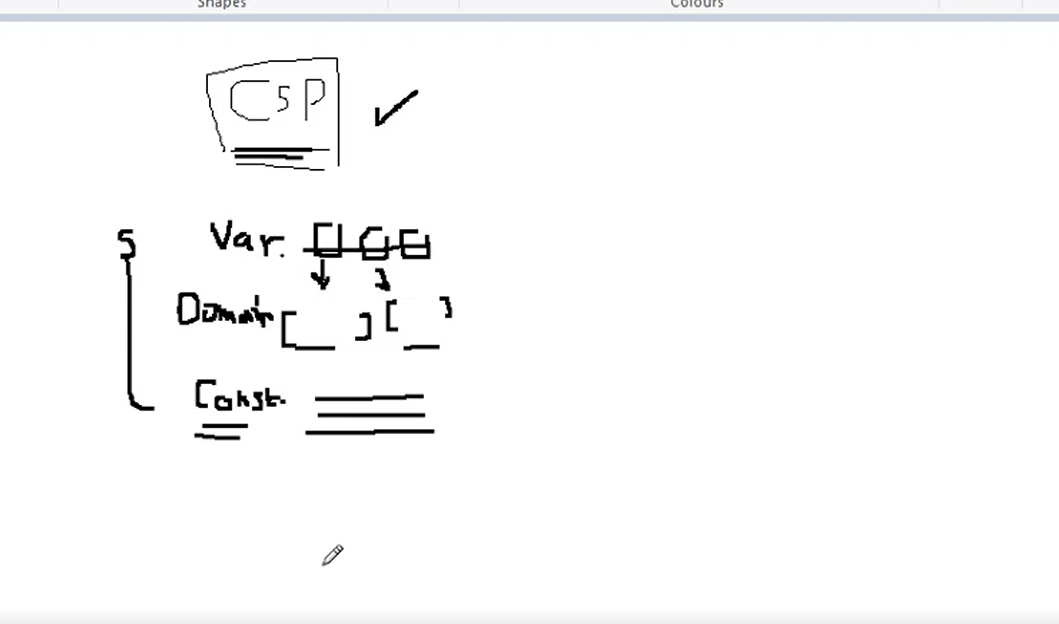 Shapes Colours
CSP
S Var.
Domain
Const.